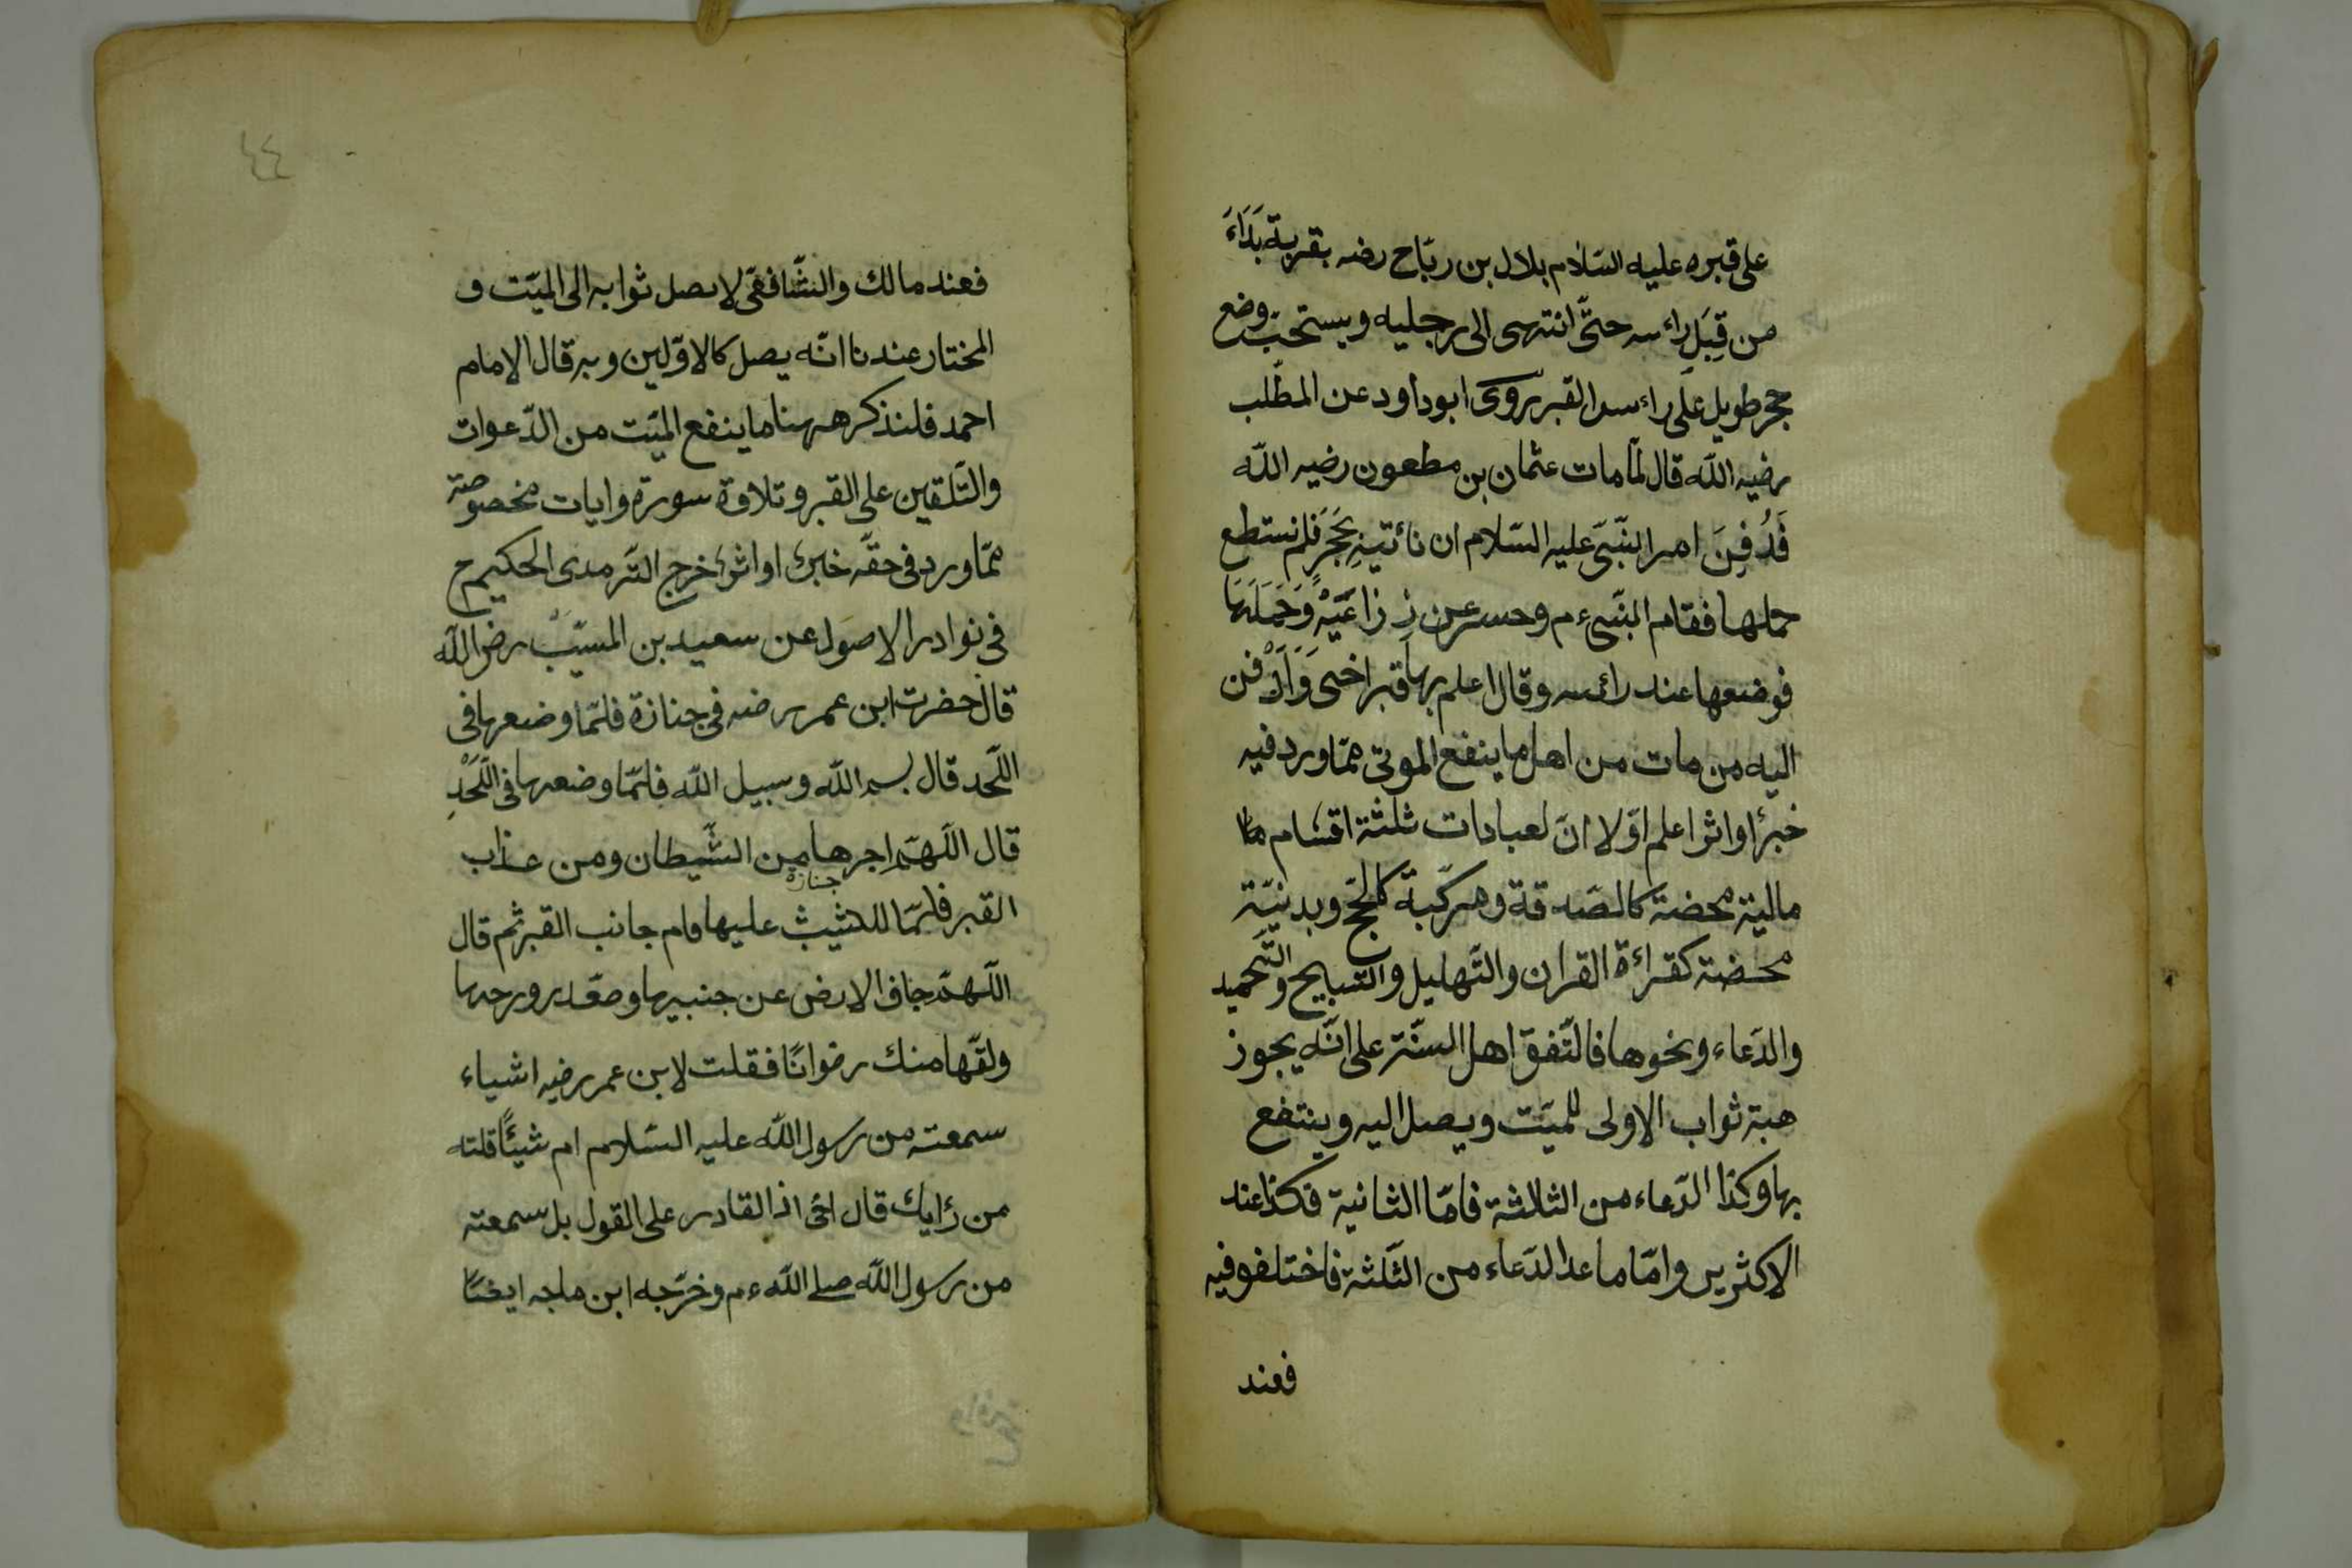 على قبره عليه السّلام بلال بن ربّاح رضه بقربة بَدَاءَ
من قِبَلِ راءسه حتّى انتهى الى رجليه ويستحبّ وضع
حجر طويل على راءس القبر روى ابو داود عن المطّلب
رضيه اللّه قال لمّا مات عثمان بن مطعون رضيه اللّه
فَدُفِنَ امر النبّىَ عليه السّلام ان نائتيه بحَجَرٍ فلم نستطع
حملها فقام النبّى ءم وحسر عن ذِرَاعَيْهِ وَحَمَلَهَا
فوضعها عند رائسه وقال اعلم بها قبر اخى وَاَدْفن
اليه من مات من اهل ما ينفع الموتى ممّا ورد فيه
خبرًا واثرا اعلم اوّلا انّ لعبادات ثلثة اقسام
مالية محضة كالصّدقة ومركّبة كالحجّ وبدنيّة
محضة كقراءة القران والتّهليل والتّسبيح والتّحميد
والدّعاء ونحوها فالتّفق اهل السنّة على انّه يجوز
هبة ثواب الاولى للميّت ويصل اليه وينتفع
بها وكذا الدّعاء من الثلاثة فامّا الثانية فكذا عند
الاكثرين وامّا ما عدا الدّعاء من الثّلثة فاختلفو فيه
فعند
٤٤
فعند مالك والشّافقى لا يصل ثوابه الى الميّت و
المختار عندنا انّه يصل كالاوّلين وبه قال الامام
احمد فلنذكر ههنا ما ينفع الميّت من الدّعوات
والتّلقين على القبر وتلاوة سورة وايات مخصوصة
ممّا ورد فى حقّه خبرًا او اثرًا خرج التّرمدى الحكيم ح
فى نوادر الاصول عن سعيد بن المسيّب رض اللّه
قال حضرت ابن عمر رضه فى جنازة فلمّا وضعها فى
اللّحد قال بسم اللّه وسبيل اللّه فلمّا وضعها فى اللَّحْدِ
قال اللّهمّ اجرها من الشّيطان ومن عذاب
جنازة
القبر فلمّا عليها قام جانب القبر ثم قال
اللّهمّ جاف الارض عن جنبيها وصعّد روحها
ولقّها منك رضوانًا فقلت لابن عمر رضيه اشياء
سمعته من رسول اللّه عليه السّلام ام شيئًا قلته
من رَايك قال انّى اذا القادر على القول بل سمعته
من رسول اللّه صلى اللّه ءم وخرّجه ابن ماجه ايضًا